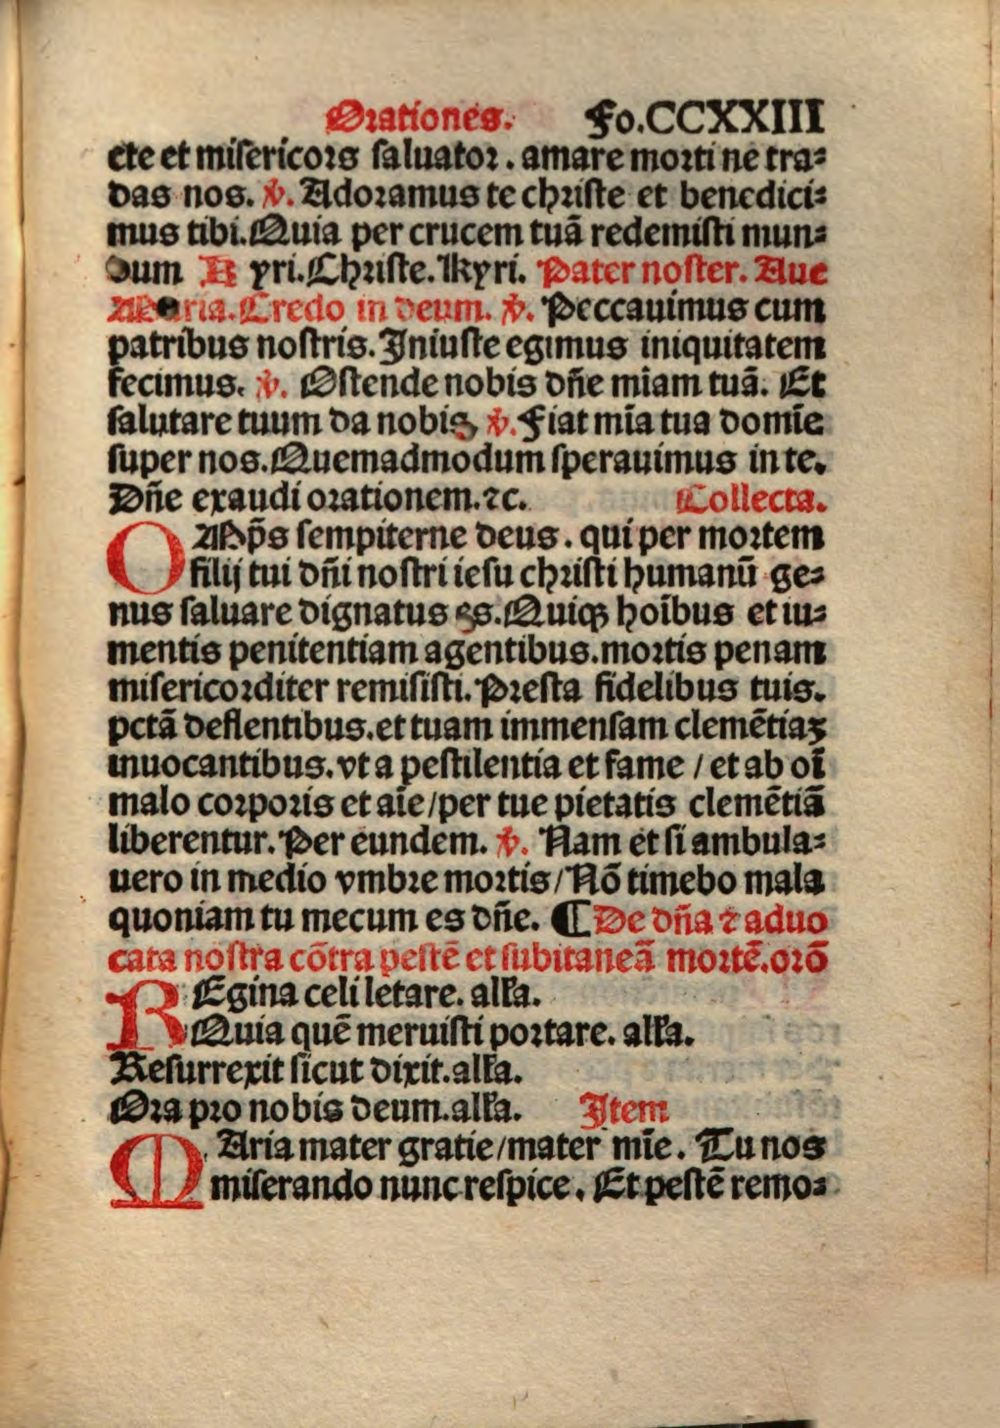 Orationes. Fo.CCXXIII
cte et miſericors ſaluator. amare morti ne tra⸗
das nos. ℣. Adoramus te chriſte et benedici⸗
mus tibi. Quia per crucem tuã redemiſti mun⸗
dum Kyri. Chriſte. Kyri. Pater noſter. Aue
Maria. Credo in deum. ℣. Peccauimus cum
patribus noſtris. Iniuſte egimus iniquitatem
fecimus. ℣. Oſtende nobis dñe miam tuã. Et
ſalutare tuum da nobis, ℣. Fiat mīa tua domīe
ſuper nos. Quemadmodum ſperauimus in te.
Dñe exaudi orationem. ⁊c. Collecta.
OMp̄s ſempiterne deus. qui per mortem
filij tui dñi noſtri ieſu chriſti humanū ge⸗
nus ſaluare dignatus es. Quiqꝫ hoībus et iu⸗
mentis penitentiam agentibus. mortis penam
miſericorditer remiſiſti. Preſta fidelibus tuis.
pctã deflentibus. et tuam immenſam clemẽtiaꝫ
inuocantibus. vt a peſtilentia et fame / et ab oī
malo corporis et aīe / per tue pietatis clemẽtiã
liberentur. Per eundem. ℣. Nam et ſi ambula⸗
uero in medio vmbre mortis / Nõ timebo mala
quoniam tu mecum es dñe. ¶ De dña ⁊ aduo
cata noſtra cõtra peſtẽ et ſubitaneã mortẽ. orõ
REgina celi letare. alľa.
Quia quẽ meruiſti portare. alľa.
Reſurrexit ſicut dixit. alľa.
Ora pro nobis deum. alľa. Item
MAria mater gratie / mater mīe. Tu nos
miſerando nunc reſpice. Et peſtẽ remo⸗